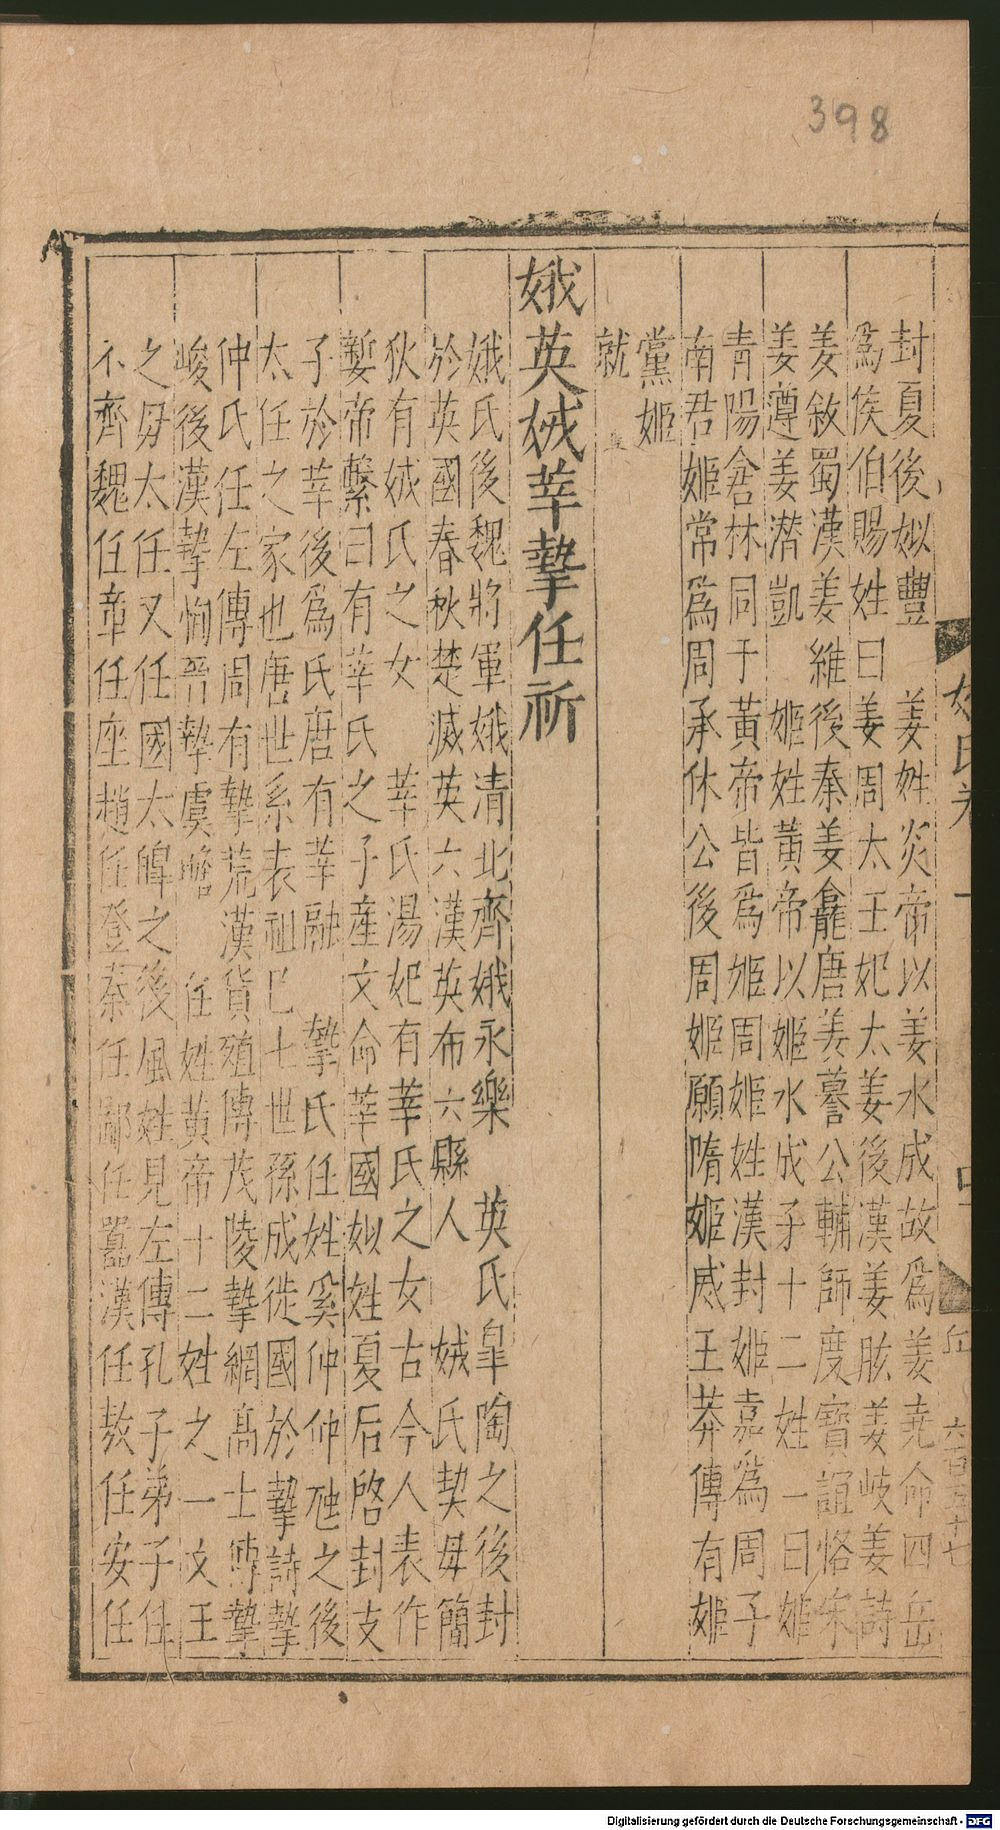 398
封夏後姒豐 姜姓炎帝以姜水成故爲姜堯命四岳
爲侯伯賜姓曰姜周太王妃太姜後漢姜肱姜岐姜詩
姜敘蜀漢姜維後秦姜龕唐姜謩公輔師度寶誼恪宋
姜遵姜潛凱 姬姓黃帝以姬水成子十二姓一曰姬
青陽倉林同于黃帝皆爲姬周姬姓漢封姬嘉爲周子
南君姬常爲周承休公後周姬願隋姬姬威王莽傳有姬
黨姬
就
娥英娀莘摯任祈
娥氏後魏將軍娥清北齊娥永樂 英氏皐陶之後封
於英國春秋楚滅英六漢英布六縣人 娀氏契母簡
狄有娀氏之女 莘氏湯妃有莘氏之女古今人表作
㜪帝繫曰有莘氏之子產文命莘國姒姓夏后啓封支
子於莘後爲氏唐有莘融 摯氏任姓奚仲仲虺之後
太任之家也唐世系表祖已七世孫成徙國於摯詩摯
仲氏任左傳周有摯荒漢貨殖傳茂陵摯網高士傳摯
峻後漢摯恂晉摯虞瞻 任姓黃帝十二姓之一文王
之母太任又任國太皞之後風姓見左傳孔子弟子任
不齊魏任章任座趙任登秦任鄙任嚻漢任敖任安任
姓氏卷一
六百五十七
Digitalisierung gefördert durch die Deutsche Forschungsgemeinschaft - DFG